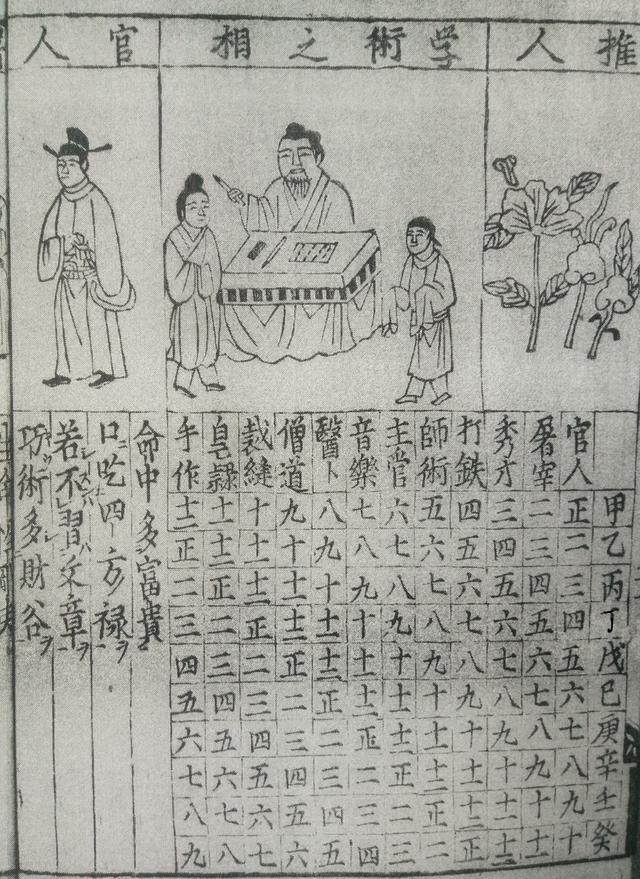 推人
学術之相
官人
甲乙丙丁戊己庚辛壬癸
官人正二三四五六七八九十
屠宰二三四五六七八九十十一
秀才三四五六七八九十十一十二
打鉄四五六七八九十十一十二正
師術五六七八九十十一十二正二
主営六七八九十十一十二正二三
音樂七八九十十一十二正二三四
醫卜八九十十一十二正二三四五
僧道九十十一十二正二三四五六
裁縫十十一十二正二三四五六七
皂隷十一十二正二三四五六七八
手作十二正二三四五六七八九
命中多富貴
口吃四方禄ヲ
若不習文章ヲ
巧術多財谷ヲ